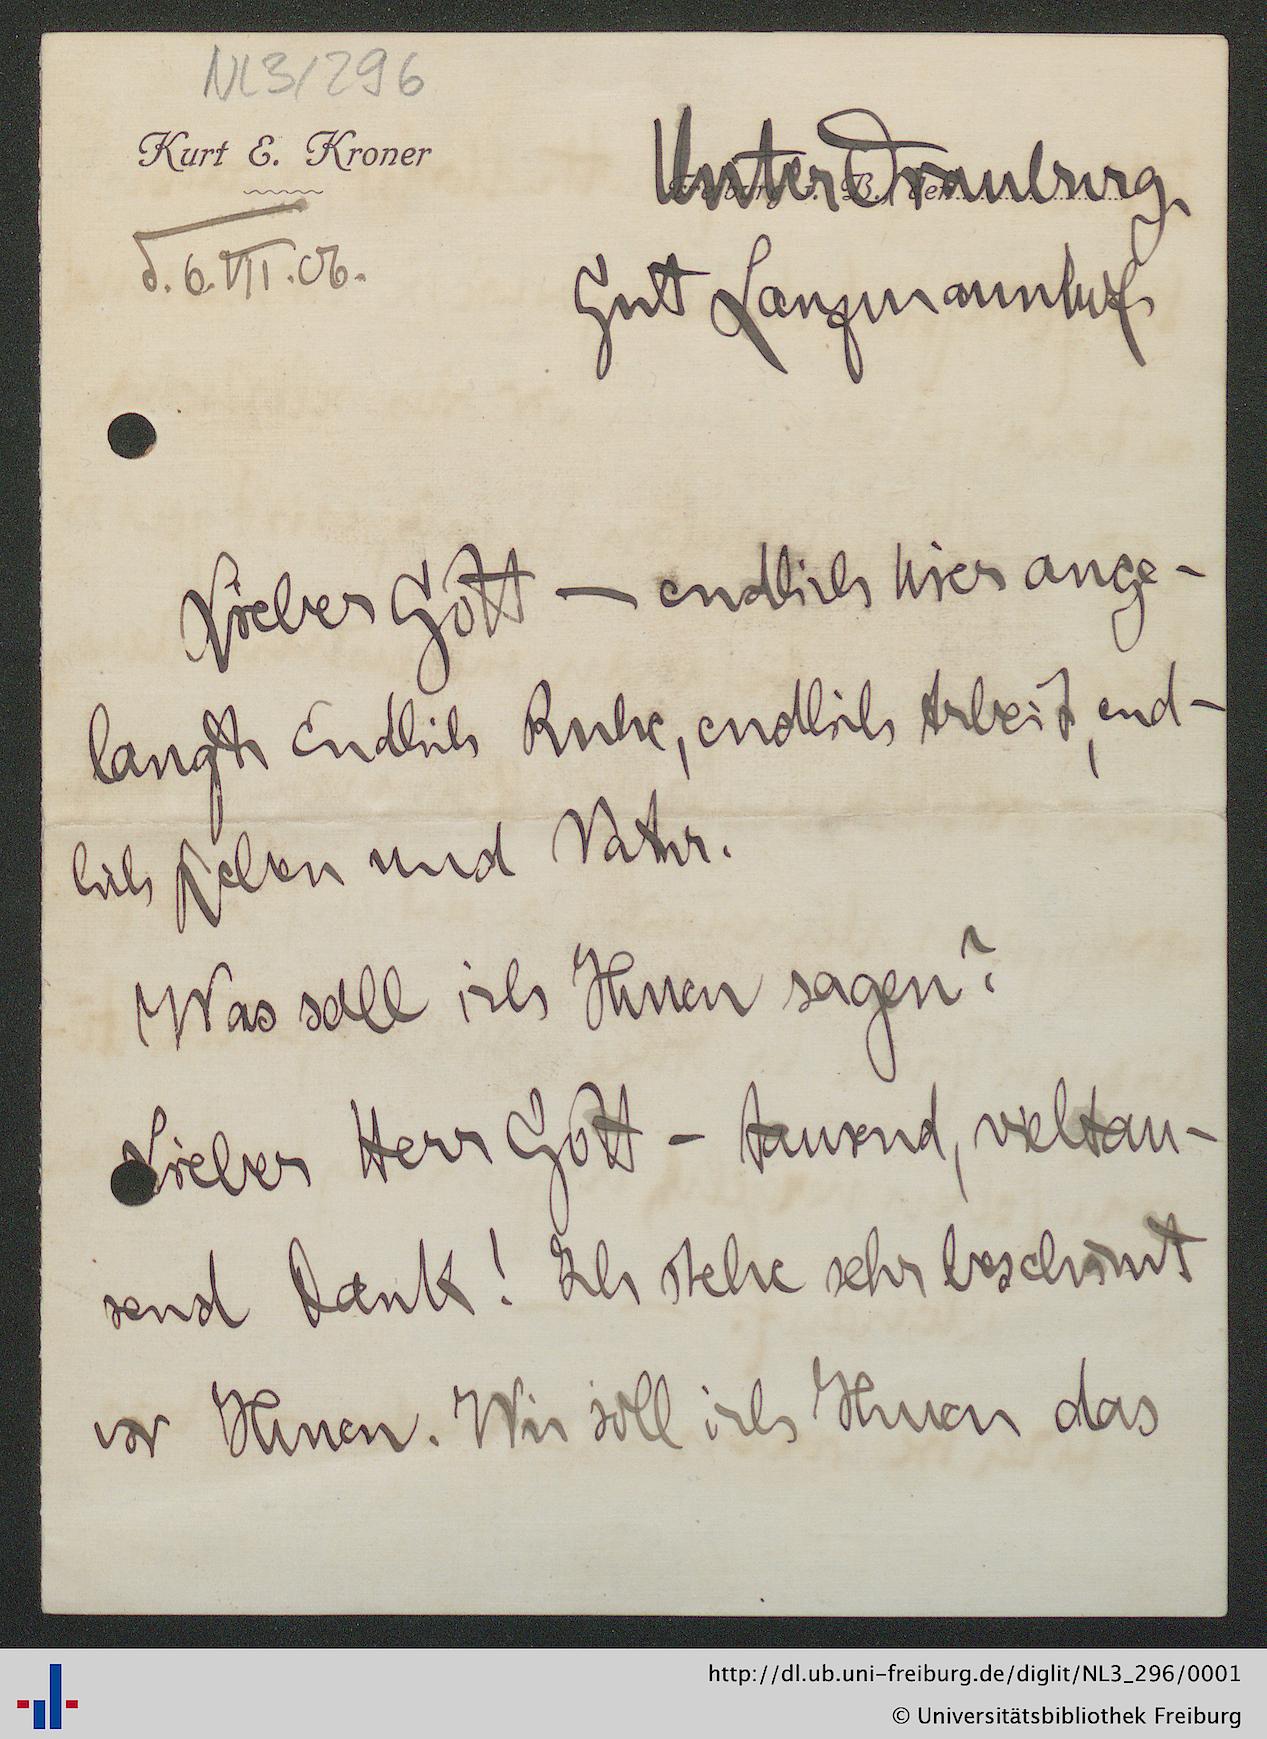 NL3/296
Kurt E. Kroner
UnterDrauburg
Gut Lanzmannhof
d. 6. VII. 06.
Lieber Gött — endlich hier ange-
langt. Endlich Ruhe, endlich Arbeit, end-
lich Leben und Natur.
Was soll ich Ihnen sagen?
Lieber Herr Gött – tausend, vieltau-
send Dank! Ich stehe sehr beschämt
vor Ihnen. Wie soll ich Ihnen das
http://dl.ub.uni-freiburg.de/diglit/NL3_296/0001
© Universitätsbibliothek Freiburg